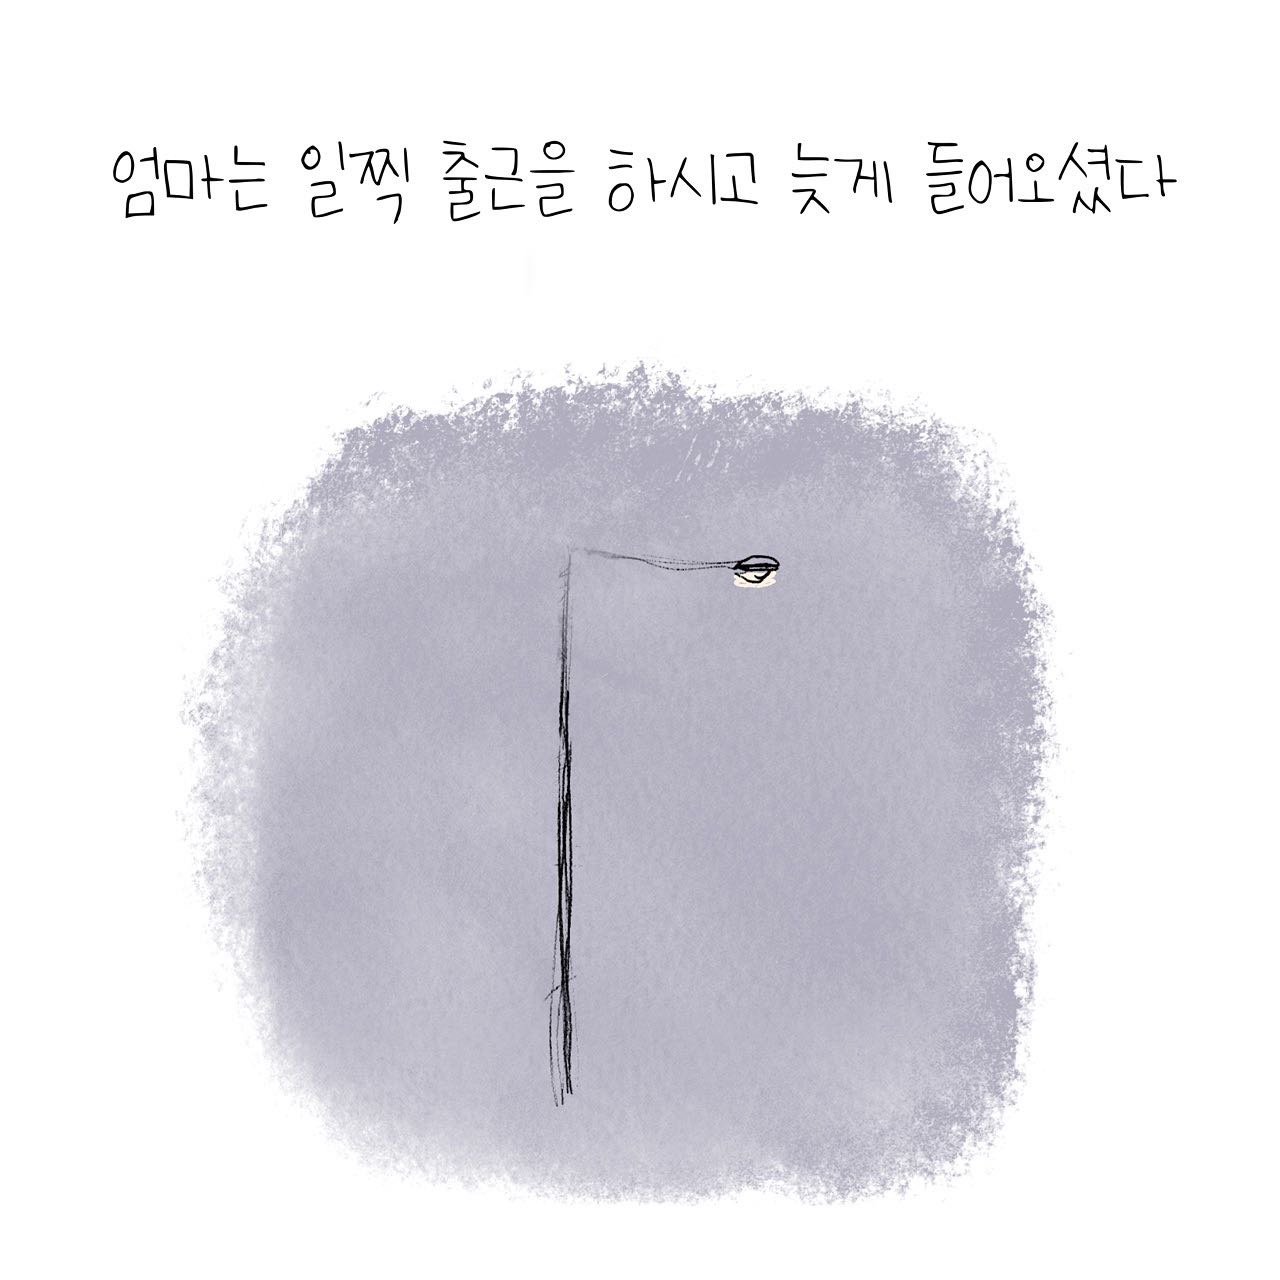 엄마는 일찍 출근을 하시고 늦게 들어오셨다